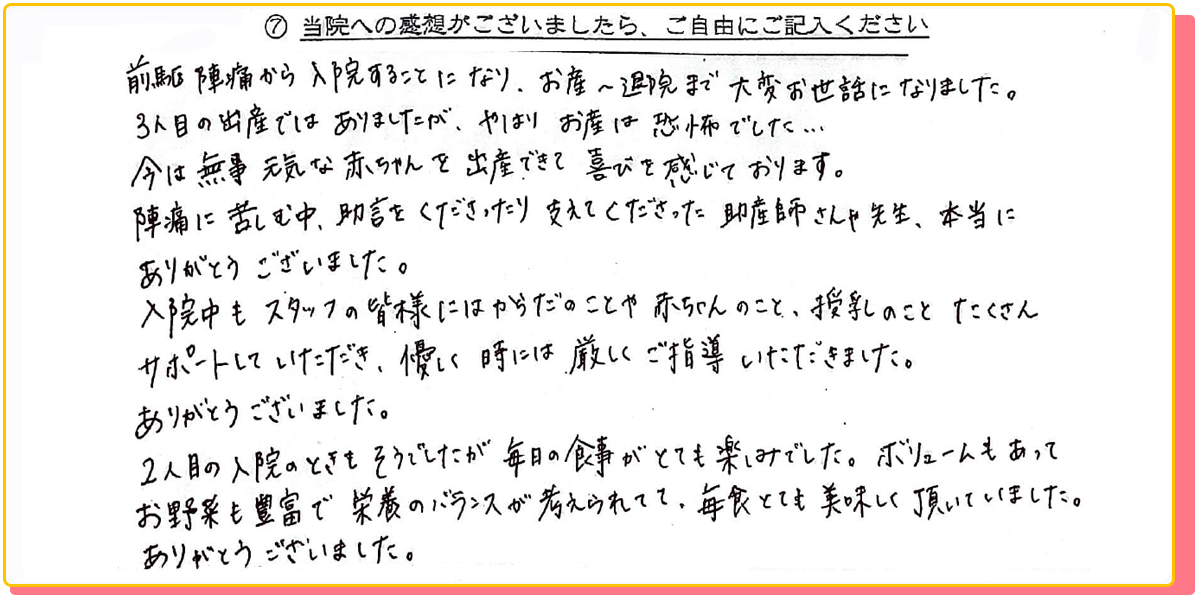 ⑦ 当院への感想がございましたら、ご自由にご記入ください
前駆陣痛から入院することになり、お産～退院まで大変お世話になりました。
3人目の出産ではありましたが、やはりお産は恐怖でした…
今は無事元気な赤ちゃんを出産できて喜びを感じております。
陣痛に苦しむ中、助言をくださったり支えてくださった助産師さんや先生、本当に
ありがとうございました。
入院中もスタッフの皆様にはからだのことや赤ちゃんのこと、授乳のことたくさん
サポートしていただき、優しく時には厳しくご指導いただきました。
ありがとうございました。
2人目の入院のときもそうでしたが毎日の食事がとても楽しみでした。ボリュームもあって
お野菜も豊富で栄養のバランスが考えられてて、毎食とても美味しく頂いていました。
ありがとうございました。